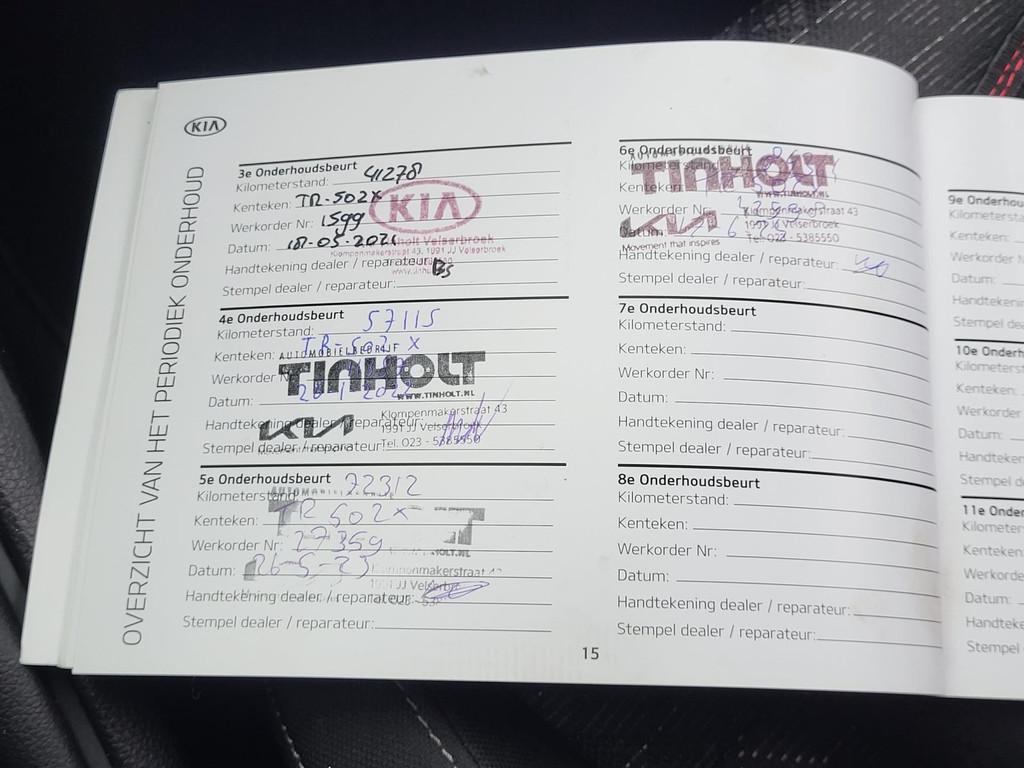 KIA
OVERZICHT VAN HET PERIODIEK ONDERHOUD
3e Onderhoudsbeurt
Kilometerstand: 41278
Kenteken: TR-502X
Werkorder Nr: 1599
Datum: 18-05-2021
KIA
Tinholt Velserbroek
Klompenmakerstraat 43, 1991 JJ Velserbroek
Handtekening dealer / reparateur:
Stempel dealer / reparateur:
4e Onderhoudsbeurt
Kilometerstand: 57115
Kenteken: TR-502X
AUTOMOBIELBEDRIJF
TINHOLT
WWW.TINHOLT.NL
Werkorder Nr
Datum:
Klompenmakerstraat 43
Handtekening dealer / reparateur:
KIA
1991 JJ Velserbroek
Stempel dealer / reparateur:
Tel. 023 - 5385550
5e Onderhoudsbeurt
Kilometerstand: 72312
Kenteken: TR 502X
Werkorder Nr: 27359
Datum: 26-5-23
Klompenmakerstraat
1991 JJ Velserbr
Handtekening dealer / reparateur:
Stempel dealer / reparateur:
6e Onderhoudsbeurt
Kilometerstand
TINHOLT
WWW.TINHOLT.NL
Kenteken:
Werkorder Nr
Klompenmakerstraat 43
KIA
Datum:
1991 JJ Velserbroek
Movement that inspires
Tel. 023 - 5385550
Handtekening dealer / reparateur:
7e Onderhoudsbeurt
Kilometerstand:
Kenteken:
Werkorder Nr:
Datum:
Handtekening dealer / reparateur:
Stempel dealer / reparateur:
8e Onderhoudsbeurt
Kilometerstand:
Kenteken:
Werkorder Nr:
Datum:
Handtekening dealer / reparateur:
Stempel dealer / reparateur:
15
9e Onderhou
Kilometerstan
Kenteken:
Werkorder N
Datum:
Handtekenin
Stempel dea
10e Onderh
Kilometerst
Kenteken:
Werkorder
Datum:
Handteken
Stempel d
11e Onder
Kilometer
Kenteken
Werkorde
Datum:
Handteke
Stempel